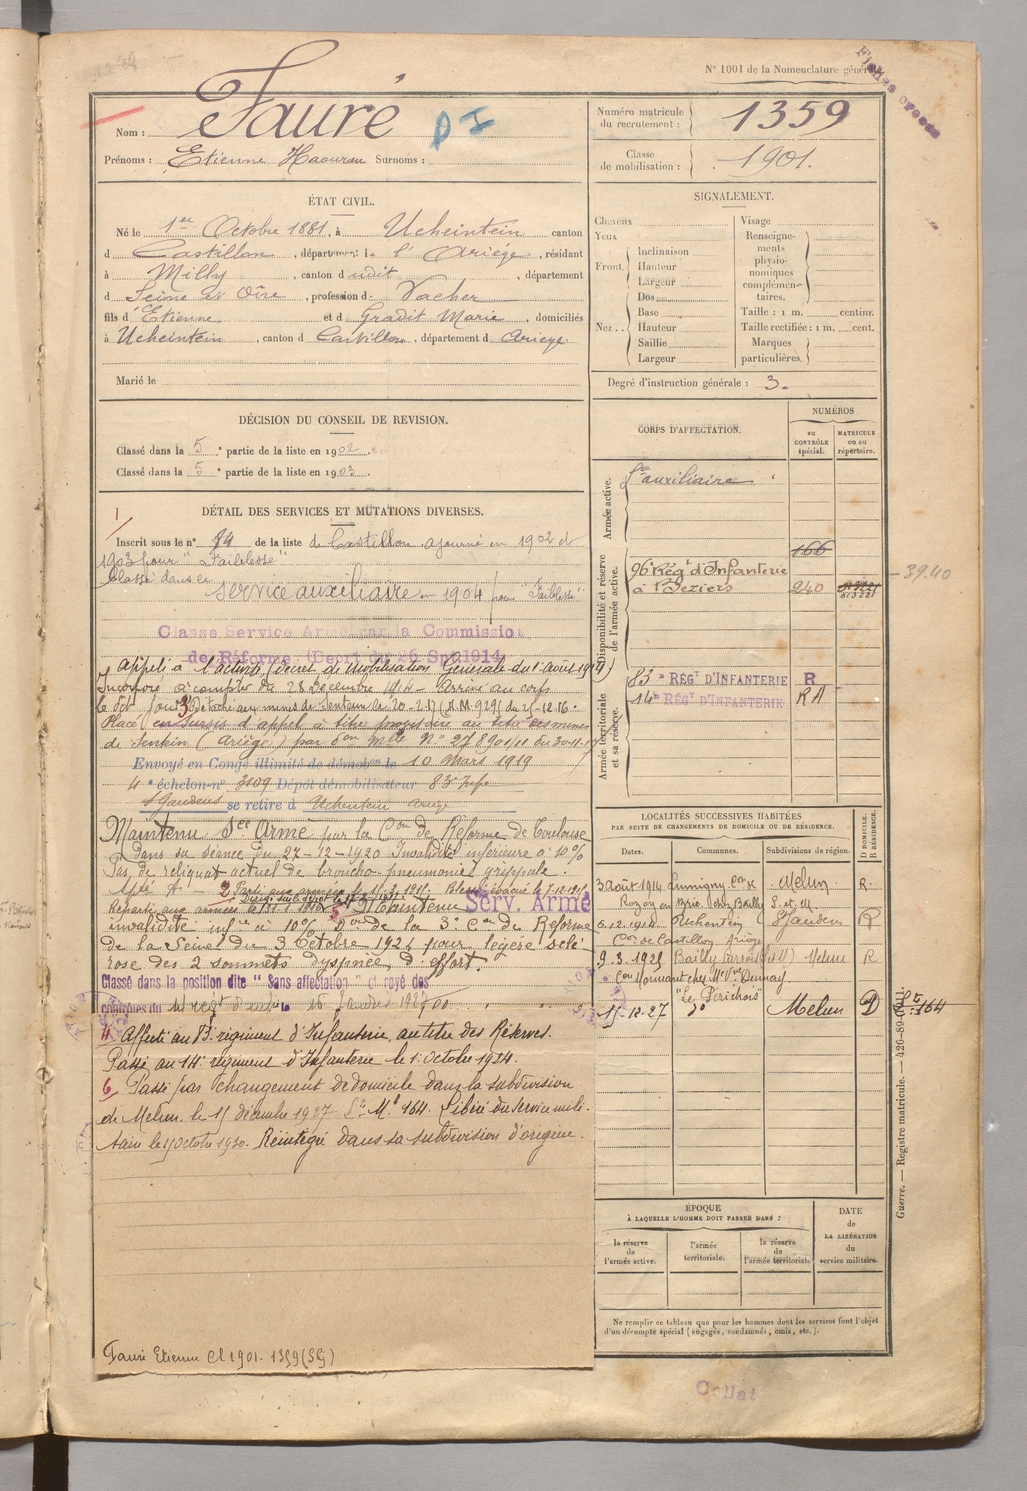 Nº 1001 de la Nomenclature générale
Fiches
Nom : Fauré
D I
Prénoms : Etienne Surnoms :
Numéro matricule du recrutement : 1359
Classe de mobilisation : 1901.
ÉTAT CIVIL.
Né le 1er Octobre 1881, à Ucheintein canton
d Castillon, département de l'Ariège, résidant
à Milly, canton dudit, département
d Seine et Oise, profession de Vacher
fils d'Etienne et de Gradit Marie, domiciliés
à Ucheintein, canton d Castillon, département d Ariège.
Marié le
SIGNALEMENT.
Cheveux
Yeux
Front
Inclinaison
Hauteur
Largeur
Nez
Dos
Base
Hauteur
Saillie
Largeur
Visage
Renseignements physionomiques complémentaires.
Taille : 1 m. centim.
Taille rectifiée : 1 m. cent.
Marques particulières.
Degré d'instruction générale : 3.
DÉCISION DU CONSEIL DE REVISION.
Classé dans la 5e partie de la liste en 1902
Classé dans la 5e partie de la liste en 1903
DÉTAIL DES SERVICES ET MUTATIONS DIVERSES.
Inscrit sous le nº 84 de la liste de Castillon ajourné en 1902 et
1903 pour "Faiblesse"
Classé dans le
service auxiliaire en 1904 pour "Faiblesse"
Classé Service Armé par la Commission
de Réforme (Décret du 26 Sept 1914
Appelé à l'activité (Décret de Mobilisation Générale du 1er août 1914)
Incorporé à compter du 28 Décembre 1914 - Arrivé au corps
le dit jour. Détaché aux mines de Sentein le 20-2-17
Placé en sursis d'appel à titre
de Sentein (Ariège) par
Envoyé en Congé illimité de démobon le 10 Mars 1919
4e échelon nº 3109 Dépôt démobilisateur 83e
St Gaudens se retire à Ucheintein Ariège
Maintenu Sce Armé par la Con de Réforme de Toulouse
Dans sa séance du 27-12-1920 Invalidité inférieure à 10%
Pas de reliquat actuel de broncho-pneumonie grippale.
Maintenu Serv. Armé
invalidité infre à 10% Don de la 3e Con de Réforme
de la Seine du 3 Octobre 1924 pour légère sclé
rose des 2 sommets dyspnée d'effort.
Classé dans la position dite "Sans affectation"
4 Affecté au regiment d'Infanterie, au titre des Réserves.
Passé au 14e régiment d'Infanterie le 1er Octobre 1924.
6 Passé par changement de domicile dans la subdivision
de Melun. le 15 décembre 1927 Lte Mle 164. Libéré du service mili-
taire le 15 Octobre 1930. Réintégré dans sa subdivision d'origine.
Fauré Etienne Cl 1901-1359 (SG)
CORPS D'AFFECTATION.
NUMÉROS
au CONTRÔLE spécial.
MATRICULE ou au répertoire.
Armée active.
Sce auxiliaire
Disponibilité et réserve de l'armée active.
166
96e Régt d'Infanterie
à Béziers 240
39.40
Armée territoriale et sa réserve.
83e RÉGt D'INFANTERIE R
14e RÉGt D'INFANTERIE RA
LOCALITÉS SUCCESSIVES HABITÉES
PAR SUITE DE CHANGEMENTS DE DOMICILE OU DE RÉSIDENCE.
Dates. Communes. Subdivisions de région. D DOMICILE. R RÉSIDENCE.
3 août 1914 Lumigny Con de Melun R.
Rozoy en Brie S. et M.
6.12.1914 Ucheintein St Gaudens R
Con de Castillon Ariège
9.3.1925 Bailly Melun R
Con Mormant chez Mr
"Le Périchois"
15.12.27 do Melun D Lte 164
ÉPOQUE
À LAQUELLE L'HOMME DOIT PASSER DANS :
la réserve de l'armée active.
l'armée territoriale.
la réserve de l'armée territoriale
DATE de LA LIBÉRATION du service militaire.
Ne remplir ce tableau que pour les hommes dont les services font l'objet
d'un décompte spécial (engagés, condamnés, omis, etc.).
Guerre. — Registre matricule. — 426-89-1901.
Collat